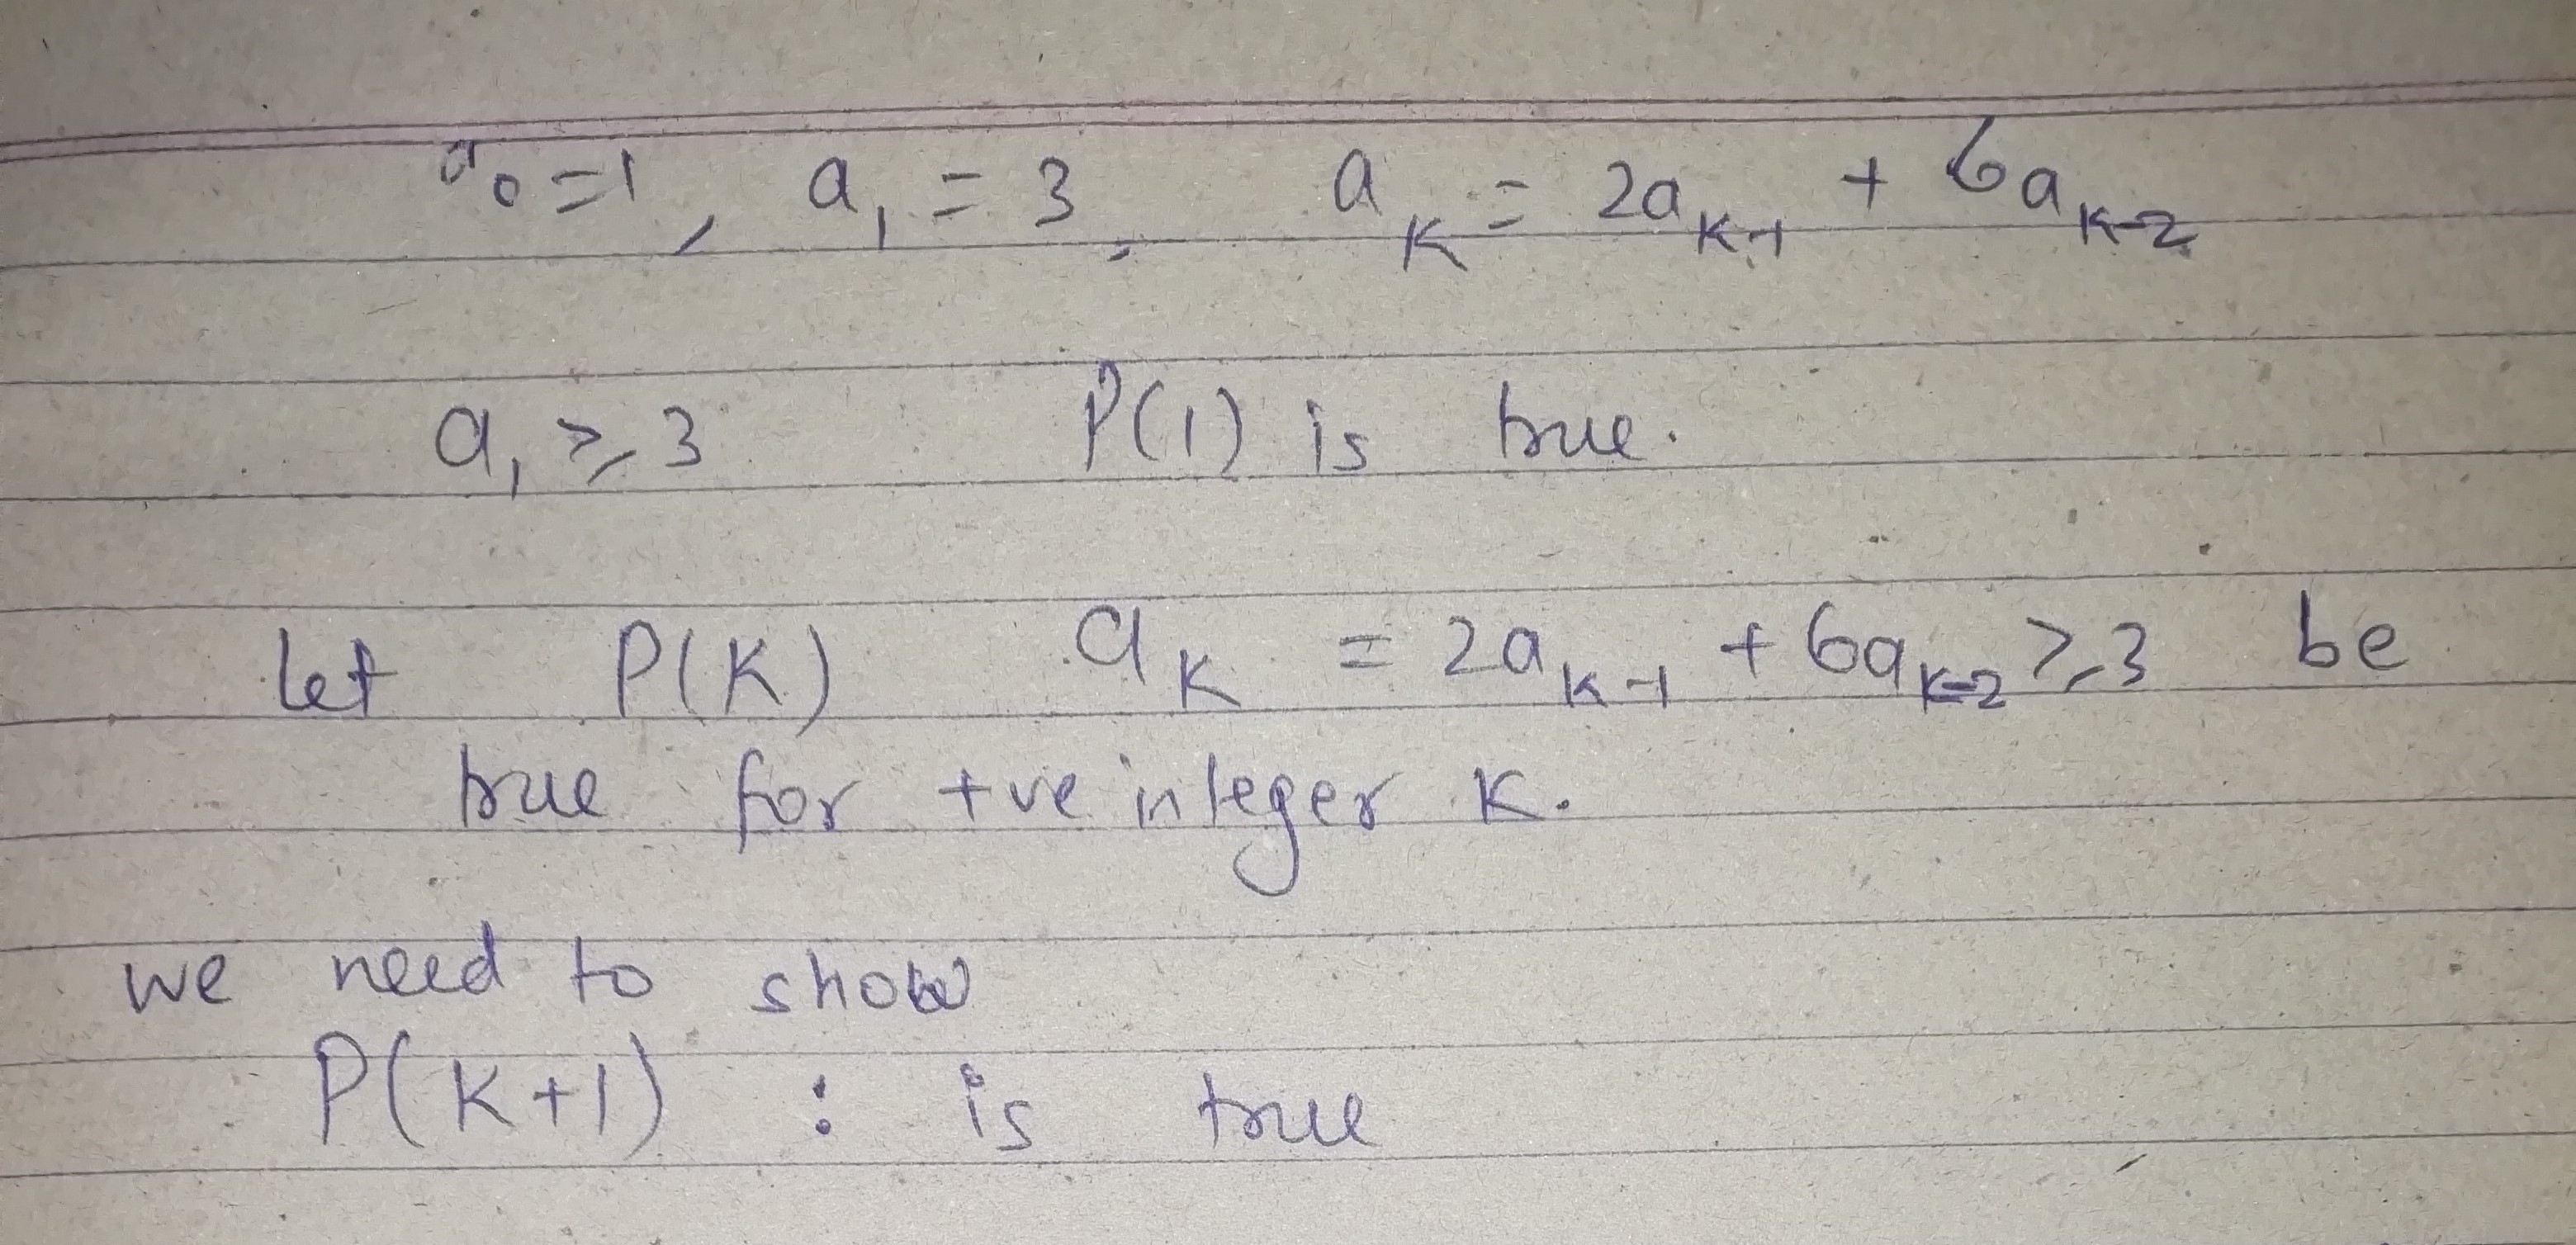 a₀ = 1, a₁ = 3, aₖ = 2aₖ₋₁ + 6aₖ₋₂
a₁ ⩾ 3 P(1) is true.
let P(K) aₖ = 2aₖ₋₁ + 6aₖ₋₂ ⩾ 3 be
true for +ve integer K.
we need to show
P(K+1) : is true